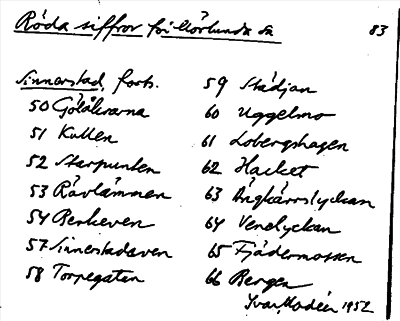 Röda siffror för Mörlunda sn
83
Sinnerstad, forts.
50 Gölåkrarna
51 Kullen
52 Starpunten
53 Rävlämmen
54 Perkeven
57 Sinnerstadaven
58 Torpegatan
59 Städjan
60 Uggelmo
61 Lobergshagen
62 Hacket
63 Ängkärrslyckan
64 Venelyckan
65 Fjädermossen
66 Bergen
Ivar Modéer 1952